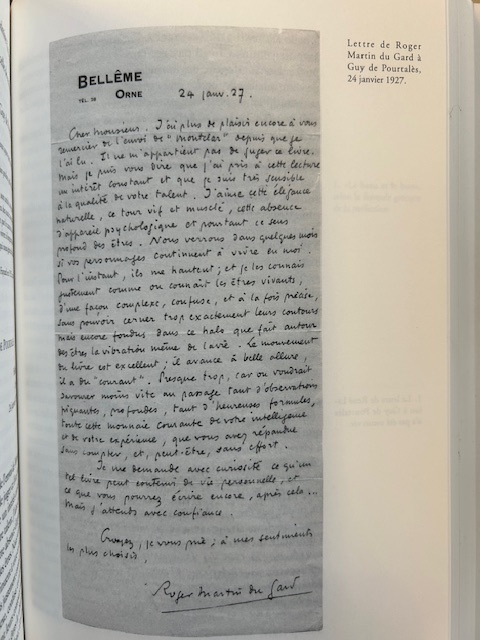 Lettre de Roger
Martin du Gard à
Guy de Pourtalès,
24 janvier 1927.
BELLÊME
TÉL. 28 ORNE
24 janv. 27.
Cher Monsieur. J'ai plus de plaisir encore à vous
remercier de l'envoi de "Montclar" depuis que je
l'ai lu. Il ne m'appartient pas de juger ce livre.
Mais je puis vous dire que j'ai pris à cette lecture
un intérêt constant et que je suis très sensible
à la qualité de votre talent. J'aime cette élégance
naturelle, ce tour vif et musclé, cette absence
d'appareil psychologique et pourtant ce sens
profond des êtres. Nous verrons dans quelques mois
si vos personnages continuent à vivre en moi.
Pour l'instant, ils me hantent ; et je les connais
justement comme on connaît les êtres vivants,
d'une façon complexe, confuse, et à la fois précise,
sans pouvoir cerner trop exactement leurs contours
mais encore fondus dans ce halo que fait autour
des êtres la vibration même de la vie. Le mouvement
du livre est excellent ; il avance à belle allure,
il a du "courant". Presque trop, car on voudrait
savourer moins vite au passage tant d'observations
piquantes, profondes, tant d'heureuses formules,
toute cette monnaie courante de votre intelligence
et de votre expérience, que vous avez répandue
sans compter, et, peut-être, sans effort.
Je me demande avec curiosité ce qu'un
tel livre peut contenir de vie personnelle, et
ce que vous pourrez écrire encore, après cela...
Mais j'attends avec confiance.
Croyez, je vous prie, à mes sentiments
les plus choisis,
Roger Martin du Gard